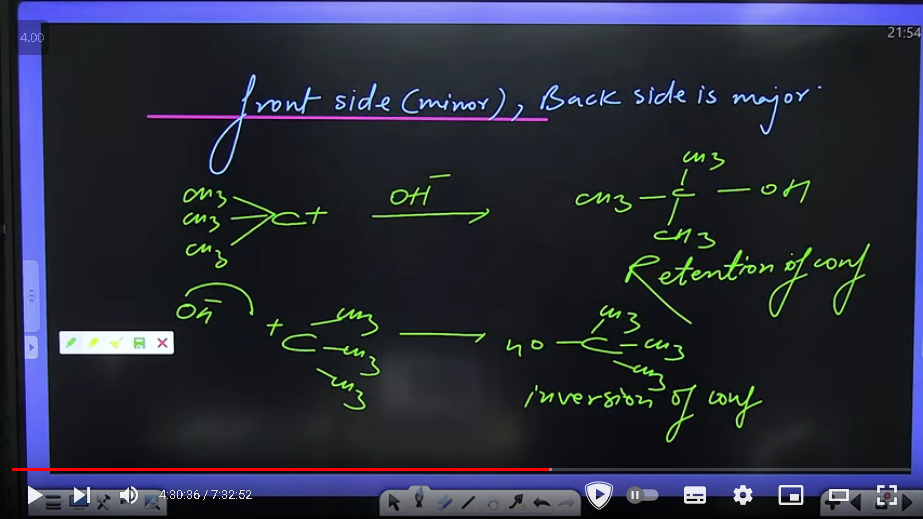 4.00
21:54
front side (minor), Back side is major
CH3
CH3
CH3
C+
OH⁻
CH3
CH3 — C — OH
CH3
Retention of conf
OH⁻
+C
CH3
CH3
CH3
HO — C
CH3
CH3
CH3
inversion of conf
4:30:36 / 7:32:52